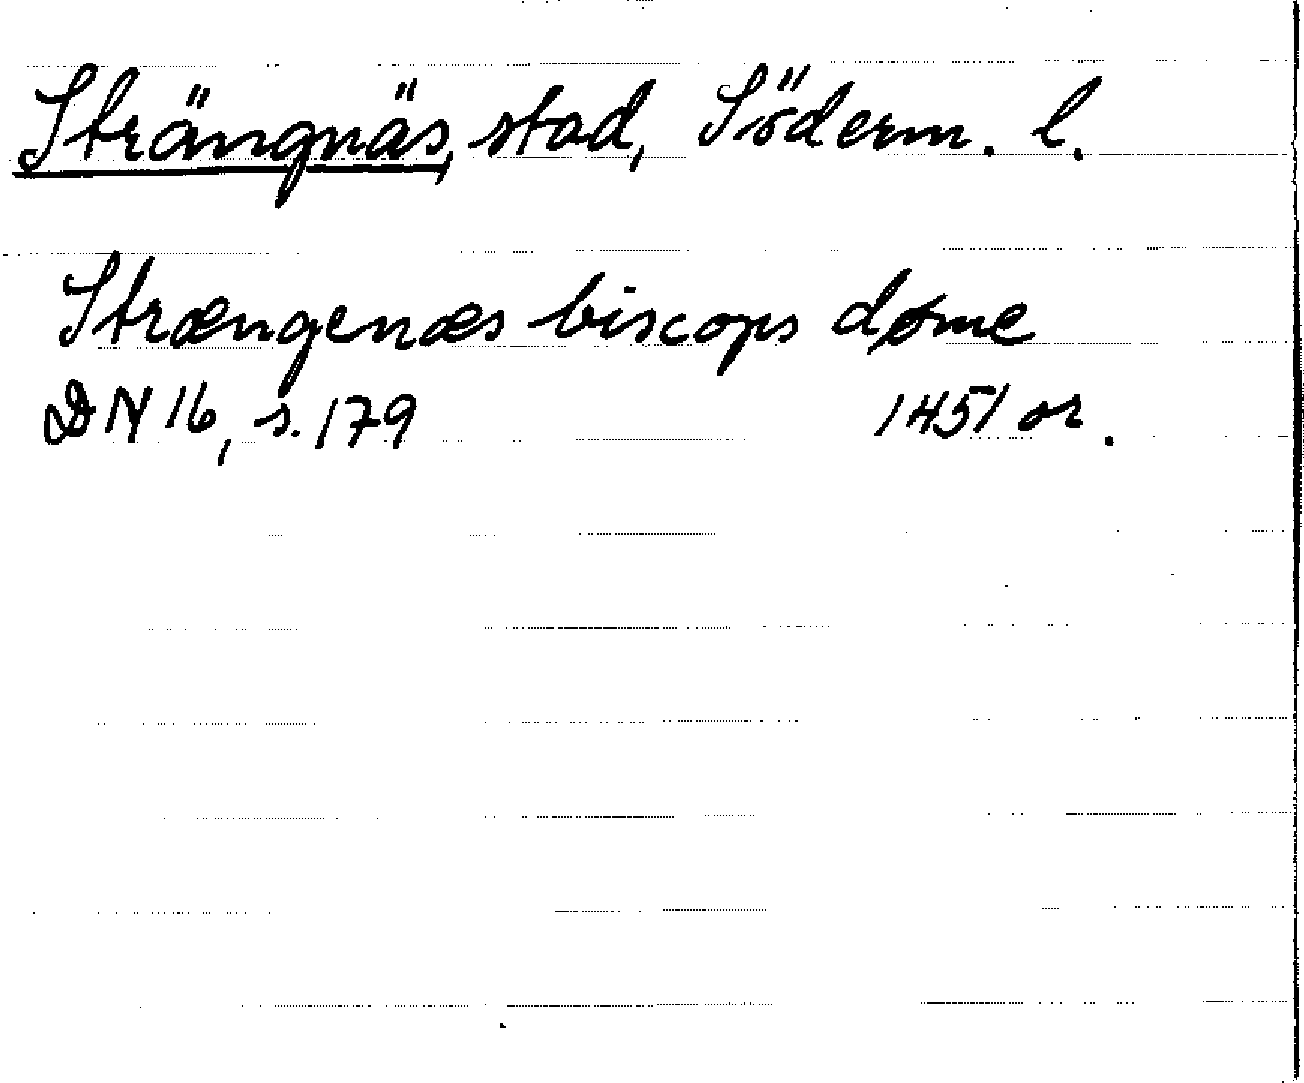 Strängnäs, stad, Söderm. l.
Strængenæs biscops døme
DN 16, s. 179 1451 or.